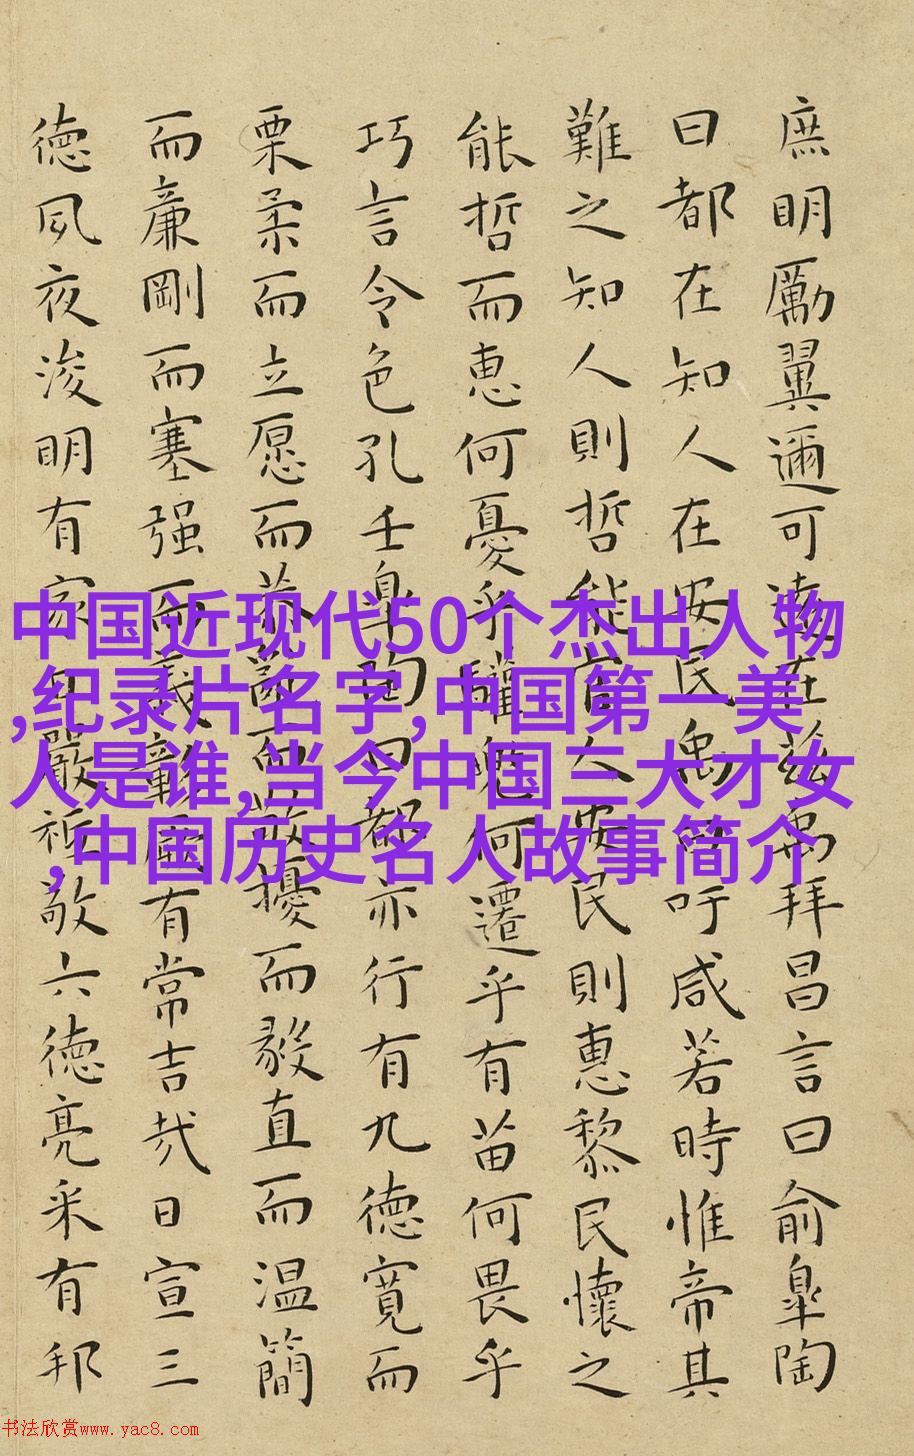 庶明勵翼邇可遠在兹禹拜昌言曰俞臯陶
曰都在知人在安民禹曰吁咸若時惟帝其
難之知人則哲能官人安民則惠黎民懷之
能哲而恵何憂乎驩兜何遷乎有苗何畏乎
巧言令色孔壬臯陶曰都亦行有九徳寬而
栗柔而立愿而恭亂而敬擾而毅直而温簡
而廉剛而塞强而義彰厥有常吉哉日宣三
徳夙夜浚明有家日嚴祗敬六徳亮采有邦
中国近现代50个杰出人物
,纪录片名字,中国第一美
人是谁,当今中国三大才女
,中国历史名人故事简介
书法欣赏www.yac8.com